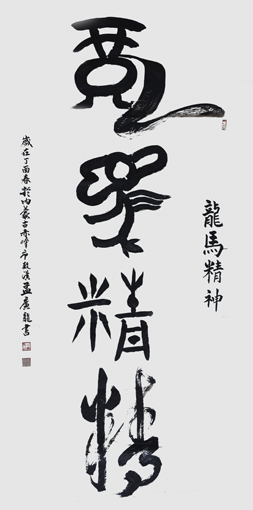 龍馬精神
龍馬精神
歲在丁酉春於内蒙古赤峰市敖漢孟廣龍書